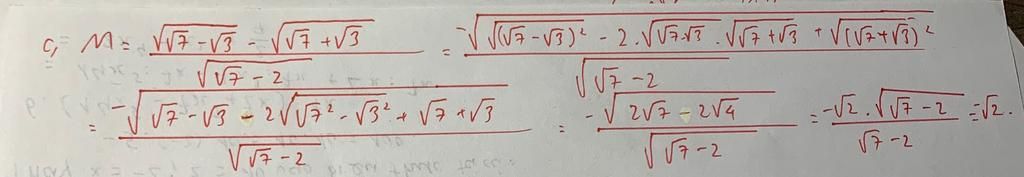 c, M = \frac{\sqrt{\sqrt{7} - \sqrt{3}} - \sqrt{\sqrt{7} + \sqrt{3}}}{\sqrt{\sqrt{7} - 2}} = \frac{-\sqrt{\sqrt{(\sqrt{7} - \sqrt{3})^2} - 2.\sqrt{\sqrt{7}.\sqrt{3}}.\sqrt{\sqrt{7} + \sqrt{3}} + \sqrt{(\sqrt{7} + \sqrt{3})^2}}}{\sqrt{\sqrt{7} - 2}}
= \frac{-\sqrt{\sqrt{7} - \sqrt{3} - 2\sqrt{\sqrt{7}^2 - \sqrt{3}^2} + \sqrt{7} + \sqrt{3}}}{\sqrt{\sqrt{7} - 2}} = \frac{-\sqrt{2\sqrt{7} - 2\sqrt{4}}}{\sqrt{\sqrt{7} - 2}} = \frac{-\sqrt{2}.\sqrt{\sqrt{7} - 2}}{\sqrt{7} - 2} = \sqrt{2}.